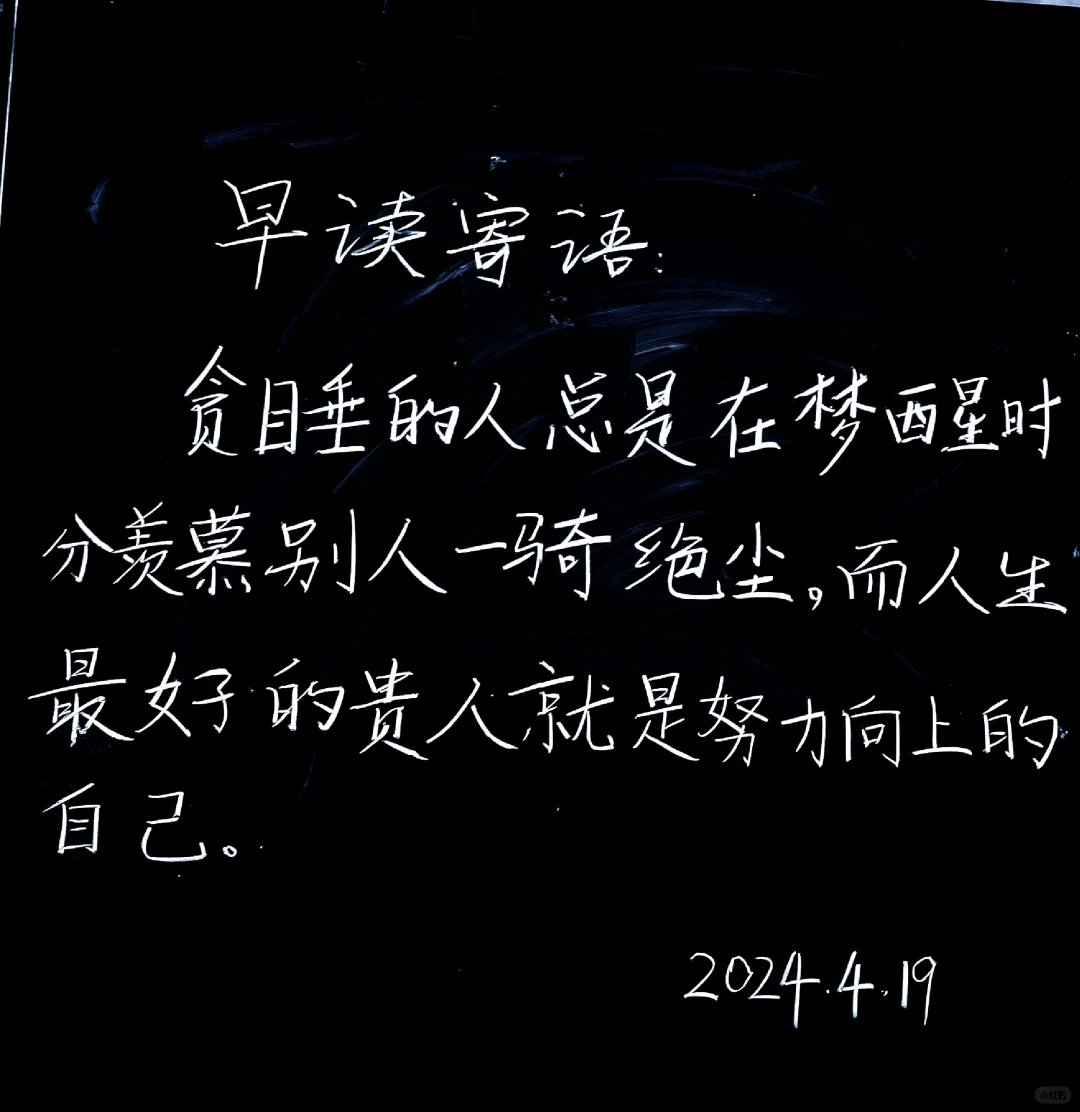 早读寄语:
贪睡的人总是在梦醒时
分羡慕别人一骑绝尘。而人生
最好的贵人就是努力向上的
自己。
2024.4.19
小红书